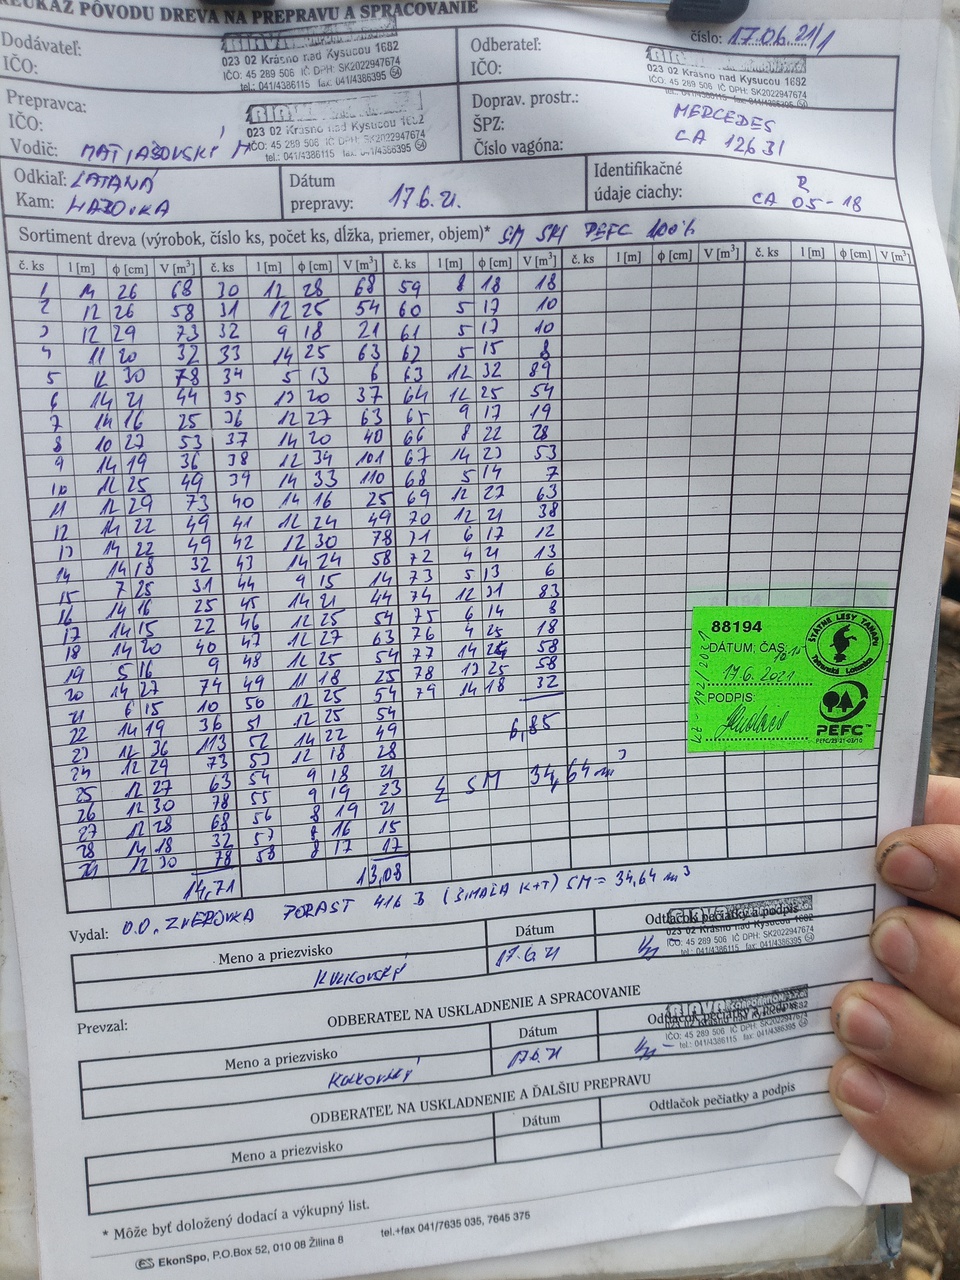 PREUKAZ PÔVODU DREVA NA PREPRAVU A SPRACOVANIE
číslo: 17.06.21/1
Dodávateľ:
IČO:
023 02 Krásno nad Kysucou 1682
IČO: 45 289 506 IČ DPH: SK2022947674
tel.: 041/4386115 fax: 041/4386395
Odberateľ:
IČO:
023 02 Krásno nad Kysucou 1682
IČO: 45 289 506 IČ DPH: SK2022947674
Prepravca:
IČO:
Vodič: MATIAŠOVSKÝ
023 02 Krásno nad Kysucou 1682
IČO: 45 289 506 IČ DPH: SK2022947674
tel.: 041/4386115 fax: 041/4386395
Doprav. prostr.: MERCEDES
ŠPZ: CA 126 31
Číslo vagóna:
Odkiaľ: LATANÁ
Kam: HABOVKA
Dátum prepravy: 17.6.21.
Identifikačné údaje ciachy: R CA 05-18
Sortiment dreva (výrobok, číslo ks, počet ks, dĺžka, priemer, objem)* SM SRI PEFC 100%
č. ks l [m] ϕ [cm] V [m³] č. ks l [m] ϕ [cm] V [m³] č. ks l [m] ϕ [cm] V [m³] č. ks l [m] ϕ [cm] V [m³] č. ks l [m] ϕ [cm] V [m³]
1 14 26 68 30 12 28 68 59 8 18 18
2 12 26 58 31 12 25 54 60 5 17 10
3 12 29 73 32 9 18 21 61 5 17 10
4 11 20 32 33 14 25 63 62 5 15 8
5 12 30 78 34 5 13 6 63 12 32 89
6 14 21 44 35 13 20 37 64 12 25 54
7 14 16 25 36 12 27 63 65 9 17 19
8 10 27 53 37 14 20 40 66 8 22 28
9 14 19 36 38 12 34 101 67 14 23 53
10 12 25 49 39 14 33 110 68 5 14 7
11 12 29 73 40 14 16 25 69 12 27 63
12 14 22 49 41 12 24 49 70 12 21 38
13 14 22 49 42 12 30 78 71 6 17 12
14 14 18 32 43 14 24 58 72 4 21 13
15 7 25 31 44 9 15 14 73 5 13 6
16 14 16 25 45 14 21 44 74 12 31 83
17 14 15 22 46 12 25 54 75 6 14 8
18 14 20 40 47 12 27 63 76 4 25 18
19 5 16 9 48 12 25 54 77 14 24 58
20 14 27 74 49 11 18 25 78 13 25 58
21 6 15 10 50 12 25 54 79 14 18 32
22 14 19 36 51 12 25 54
23 12 36 113 52 14 22 49 6,85
24 12 29 73 53 12 18 28
25 12 27 63 54 9 18 21 Σ SM 34,64 m³
26 12 30 78 55 9 19 23
27 12 28 68 56 8 19 21
28 14 18 32 57 8 16 15
29 12 30 78 58 8 17 17
14,71 13,08
88194
DÁTUM, ČAS:
17.6.2021
PODPIS:
ŠTÁTNE LESY TANAPU
Tatranská Lomnica
PEFC
O.O. ZVEROVKA PORAST 416 B (ŠIMALA K+T) SM = 34,64 m³
Vydal:
Meno a priezvisko
Dátum
17.6.21
Odtlačok pečiatky a podpis
023 02 Krásno nad Kysucou 1682
IČO: 45 289 506 IČ DPH: SK2022947674
tel.: 041/4386115 fax: 041/4386395
ODBERATEĽ NA USKLADNENIE A SPRACOVANIE
Prevzal:
Meno a priezvisko
Dátum
17.6.21
Odtlačok pečiatky a podpis
023 02 Krásno nad Kysucou 1682
IČO: 45 289 506 IČ DPH: SK2022947674
tel.: 041/4386115 fax: 041/4386395
ODBERATEĽ NA USKLADNENIE A ĎALŠIU PREPRAVU
Meno a priezvisko
Dátum
Odtlačok pečiatky a podpis
* Môže byť doložený dodací a výkupný list.
EkonSpo, P.O.Box 52, 010 08 Žilina 8 tel.+fax 041/7635 035, 7645 375